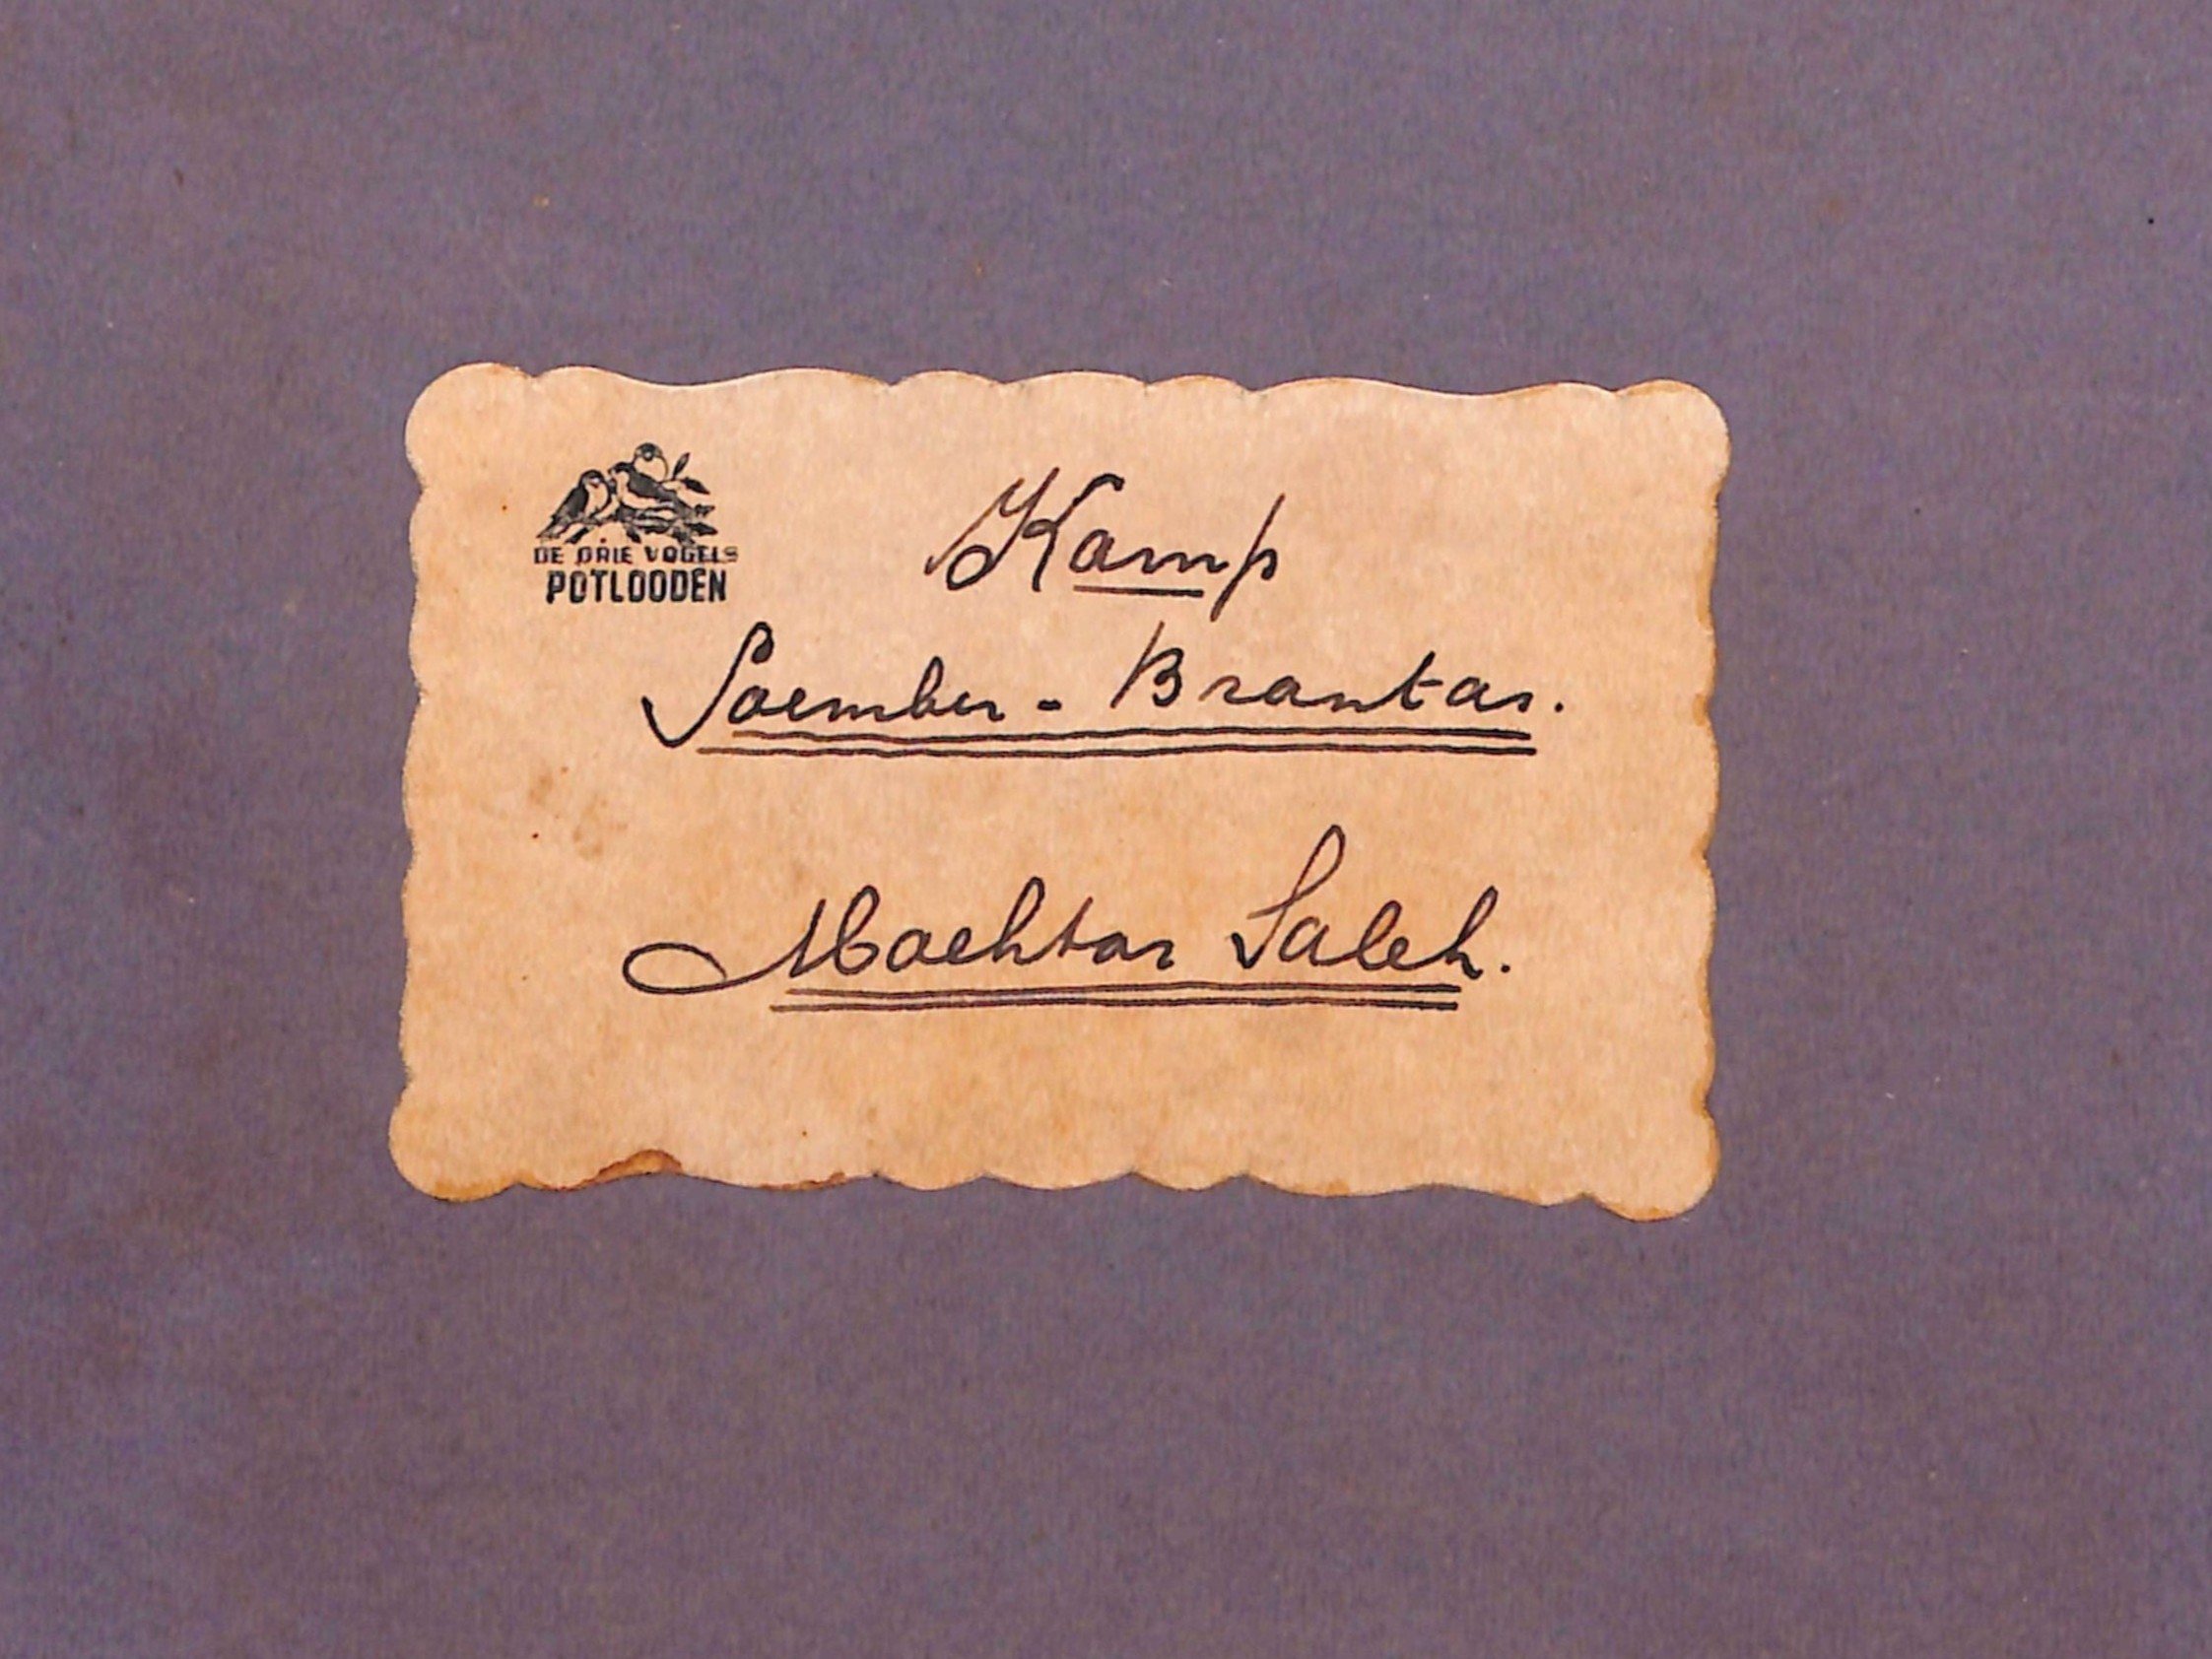 DE DRIE VOGELS
POTLOODEN
Kamp
Soember - Brantas.
Mochtar Saleh.